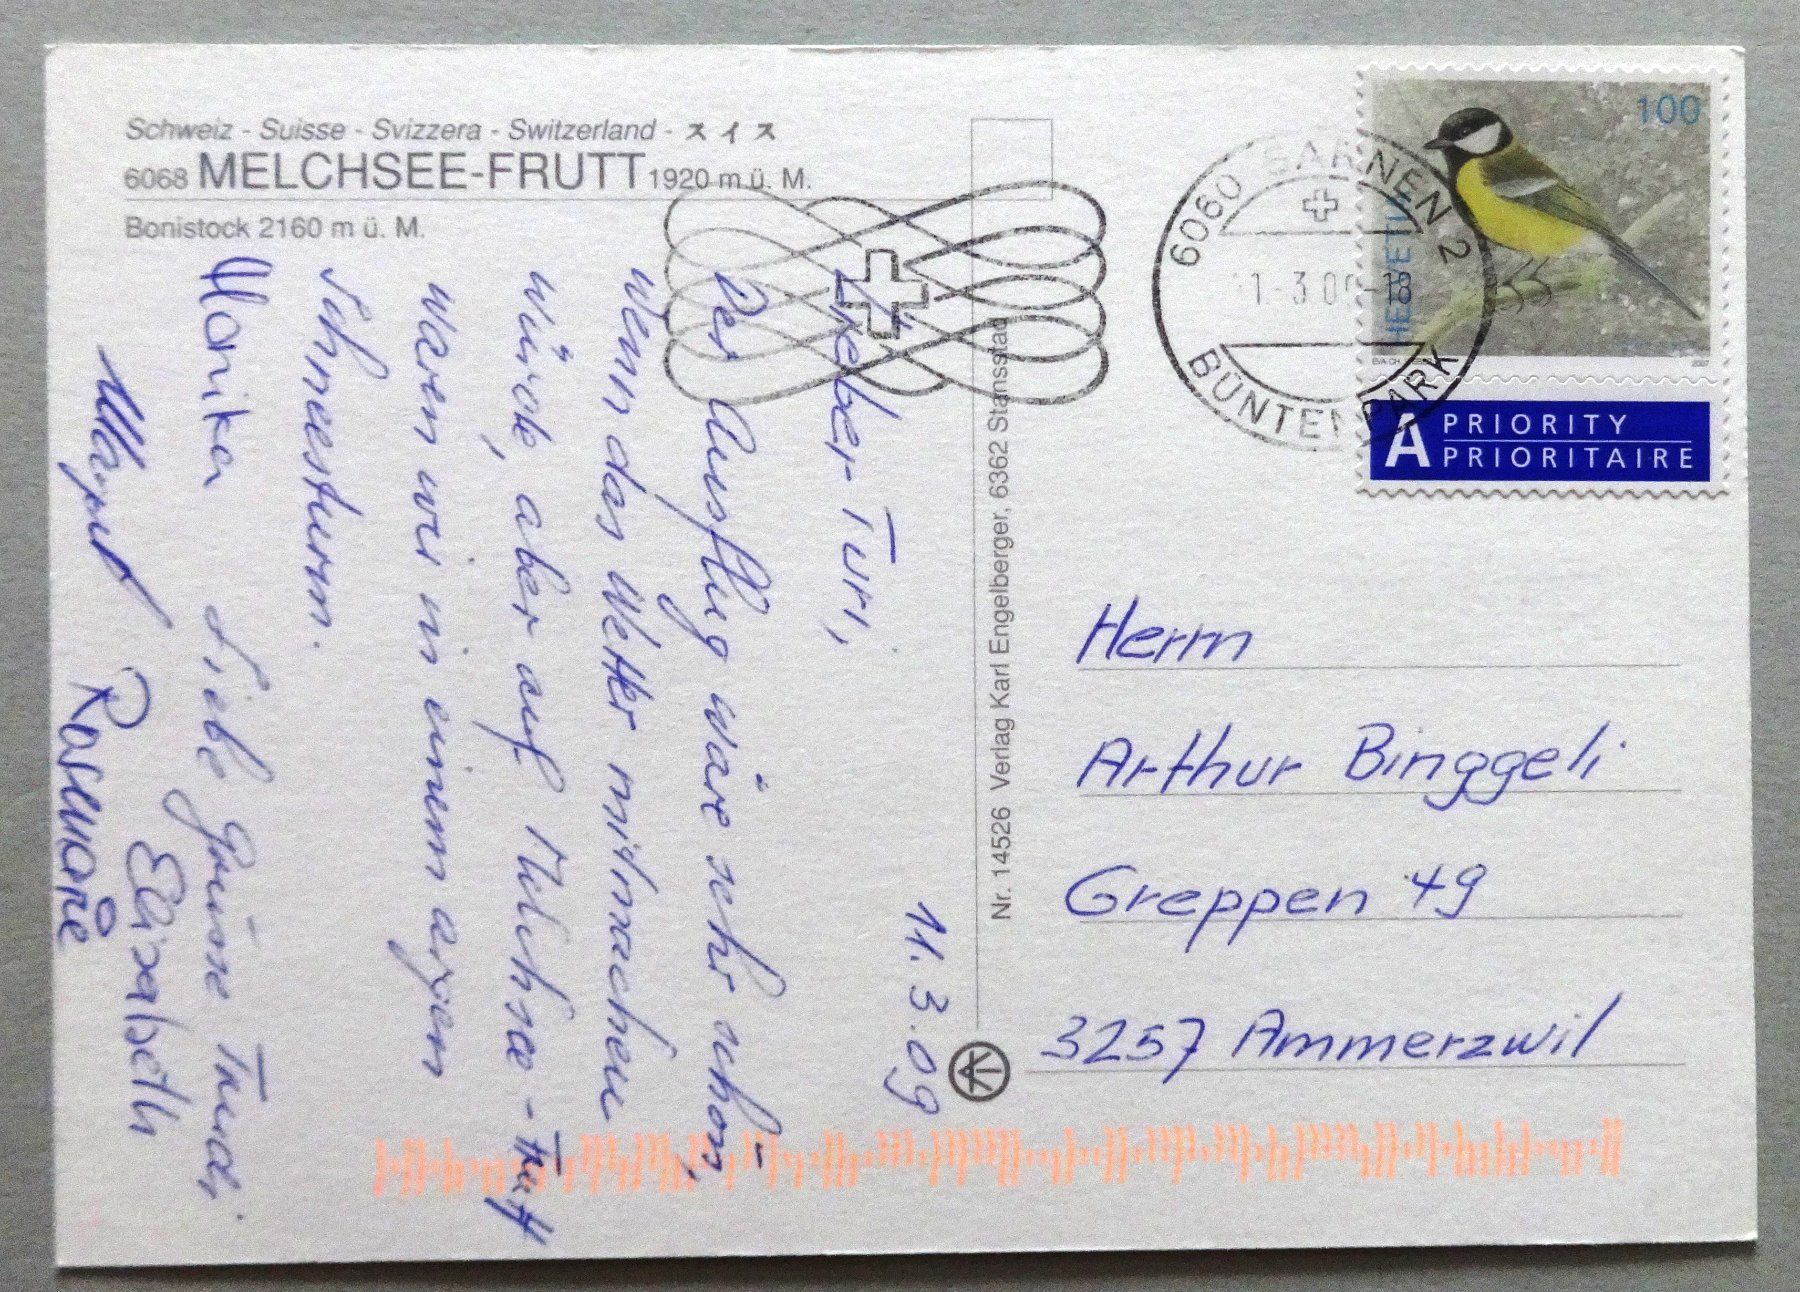 Schweiz - Suisse - Svizzera - Switzerland - スイス
6068 MELCHSEE-FRUTT 1920 m ü. M.
Bonistock 2160 m ü. M.
11.3.09
Lieber Turi,
Der Ausflug wäre sehr schön,
wenn das Wetter mitmachen
würde, aber auf Melchsee-Frutt
waren wir in einem argen
Schneesturm.
Liebe Grüsse Trudi,
Monika
Elisabeth
Margrit
Rosmarie
Nr. 14526 Verlag Karl Engelberger, 6362 Stansstad
6060 SARNEN 2
1.-3.0 -18
BÜNTENPARK
100
HELVETIA
2007
A PRIORITY
PRIORITAIRE
Herrn
Arthur Binggeli
Greppen 49
3257 Ammerzwil